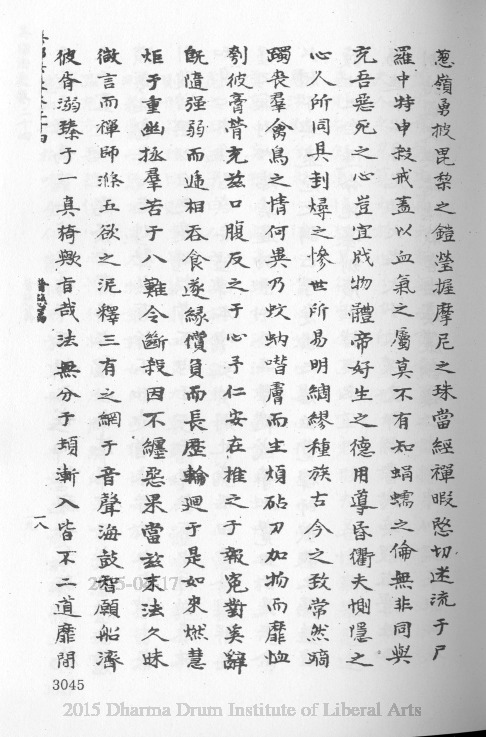 蔥嶺勇披毘棃之鎧瑩握摩尼之珠當經禪暇愍切迷流于尸
羅中特申殺戒蓋以血氣之屬莫不有知蜎蠕之倫無非同與
充吾惡死之心豈宜戕物體帝好生之德用導昏衢夫惻隱之
心人所同具刲燖之慘世所易明綢繆種族古今之致常然蹢
躅喪羣禽鳥之情何異乃蚊蚋噆膚而生煩砧刀加物而靡恤
刳彼膏膋充茲口腹反之于心予仁安在推之于報寃對奚辭
旣隨强弱而遞相吞食遂緣償負而長歷輪迴于是如來燃慧
炬于重幽拯羣苦于八難令斷殺因不纏惡果當茲末法久昧
微言而禪師滌五欲之泥釋三有之網于音聲海鼓智願船濟
彼胥溺臻于一真猗歟旨哉法無分于頓漸入皆不二道靡間
一八
3045
2015 Dharma Drum Institute of Liberal Arts